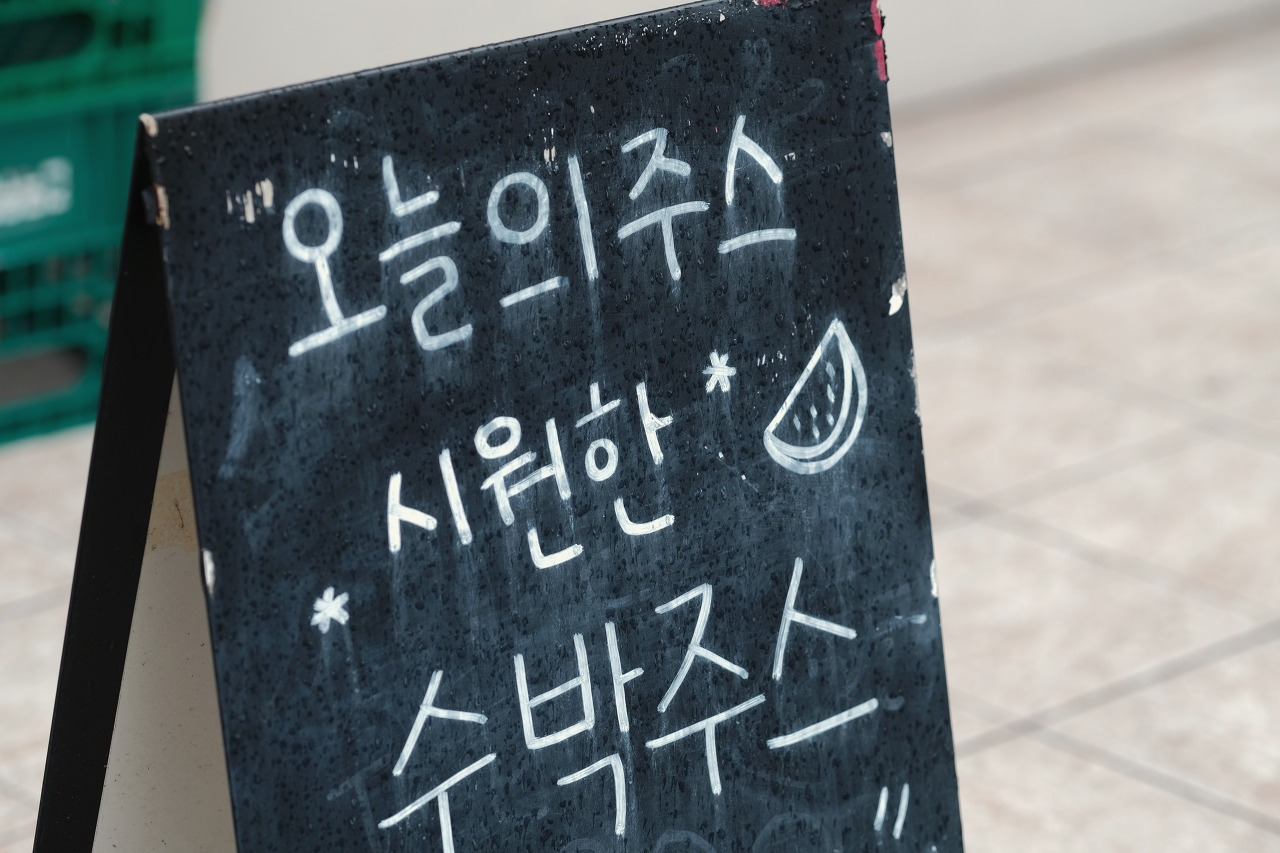 오늘의주스
시원한 *
* 수박주스
"